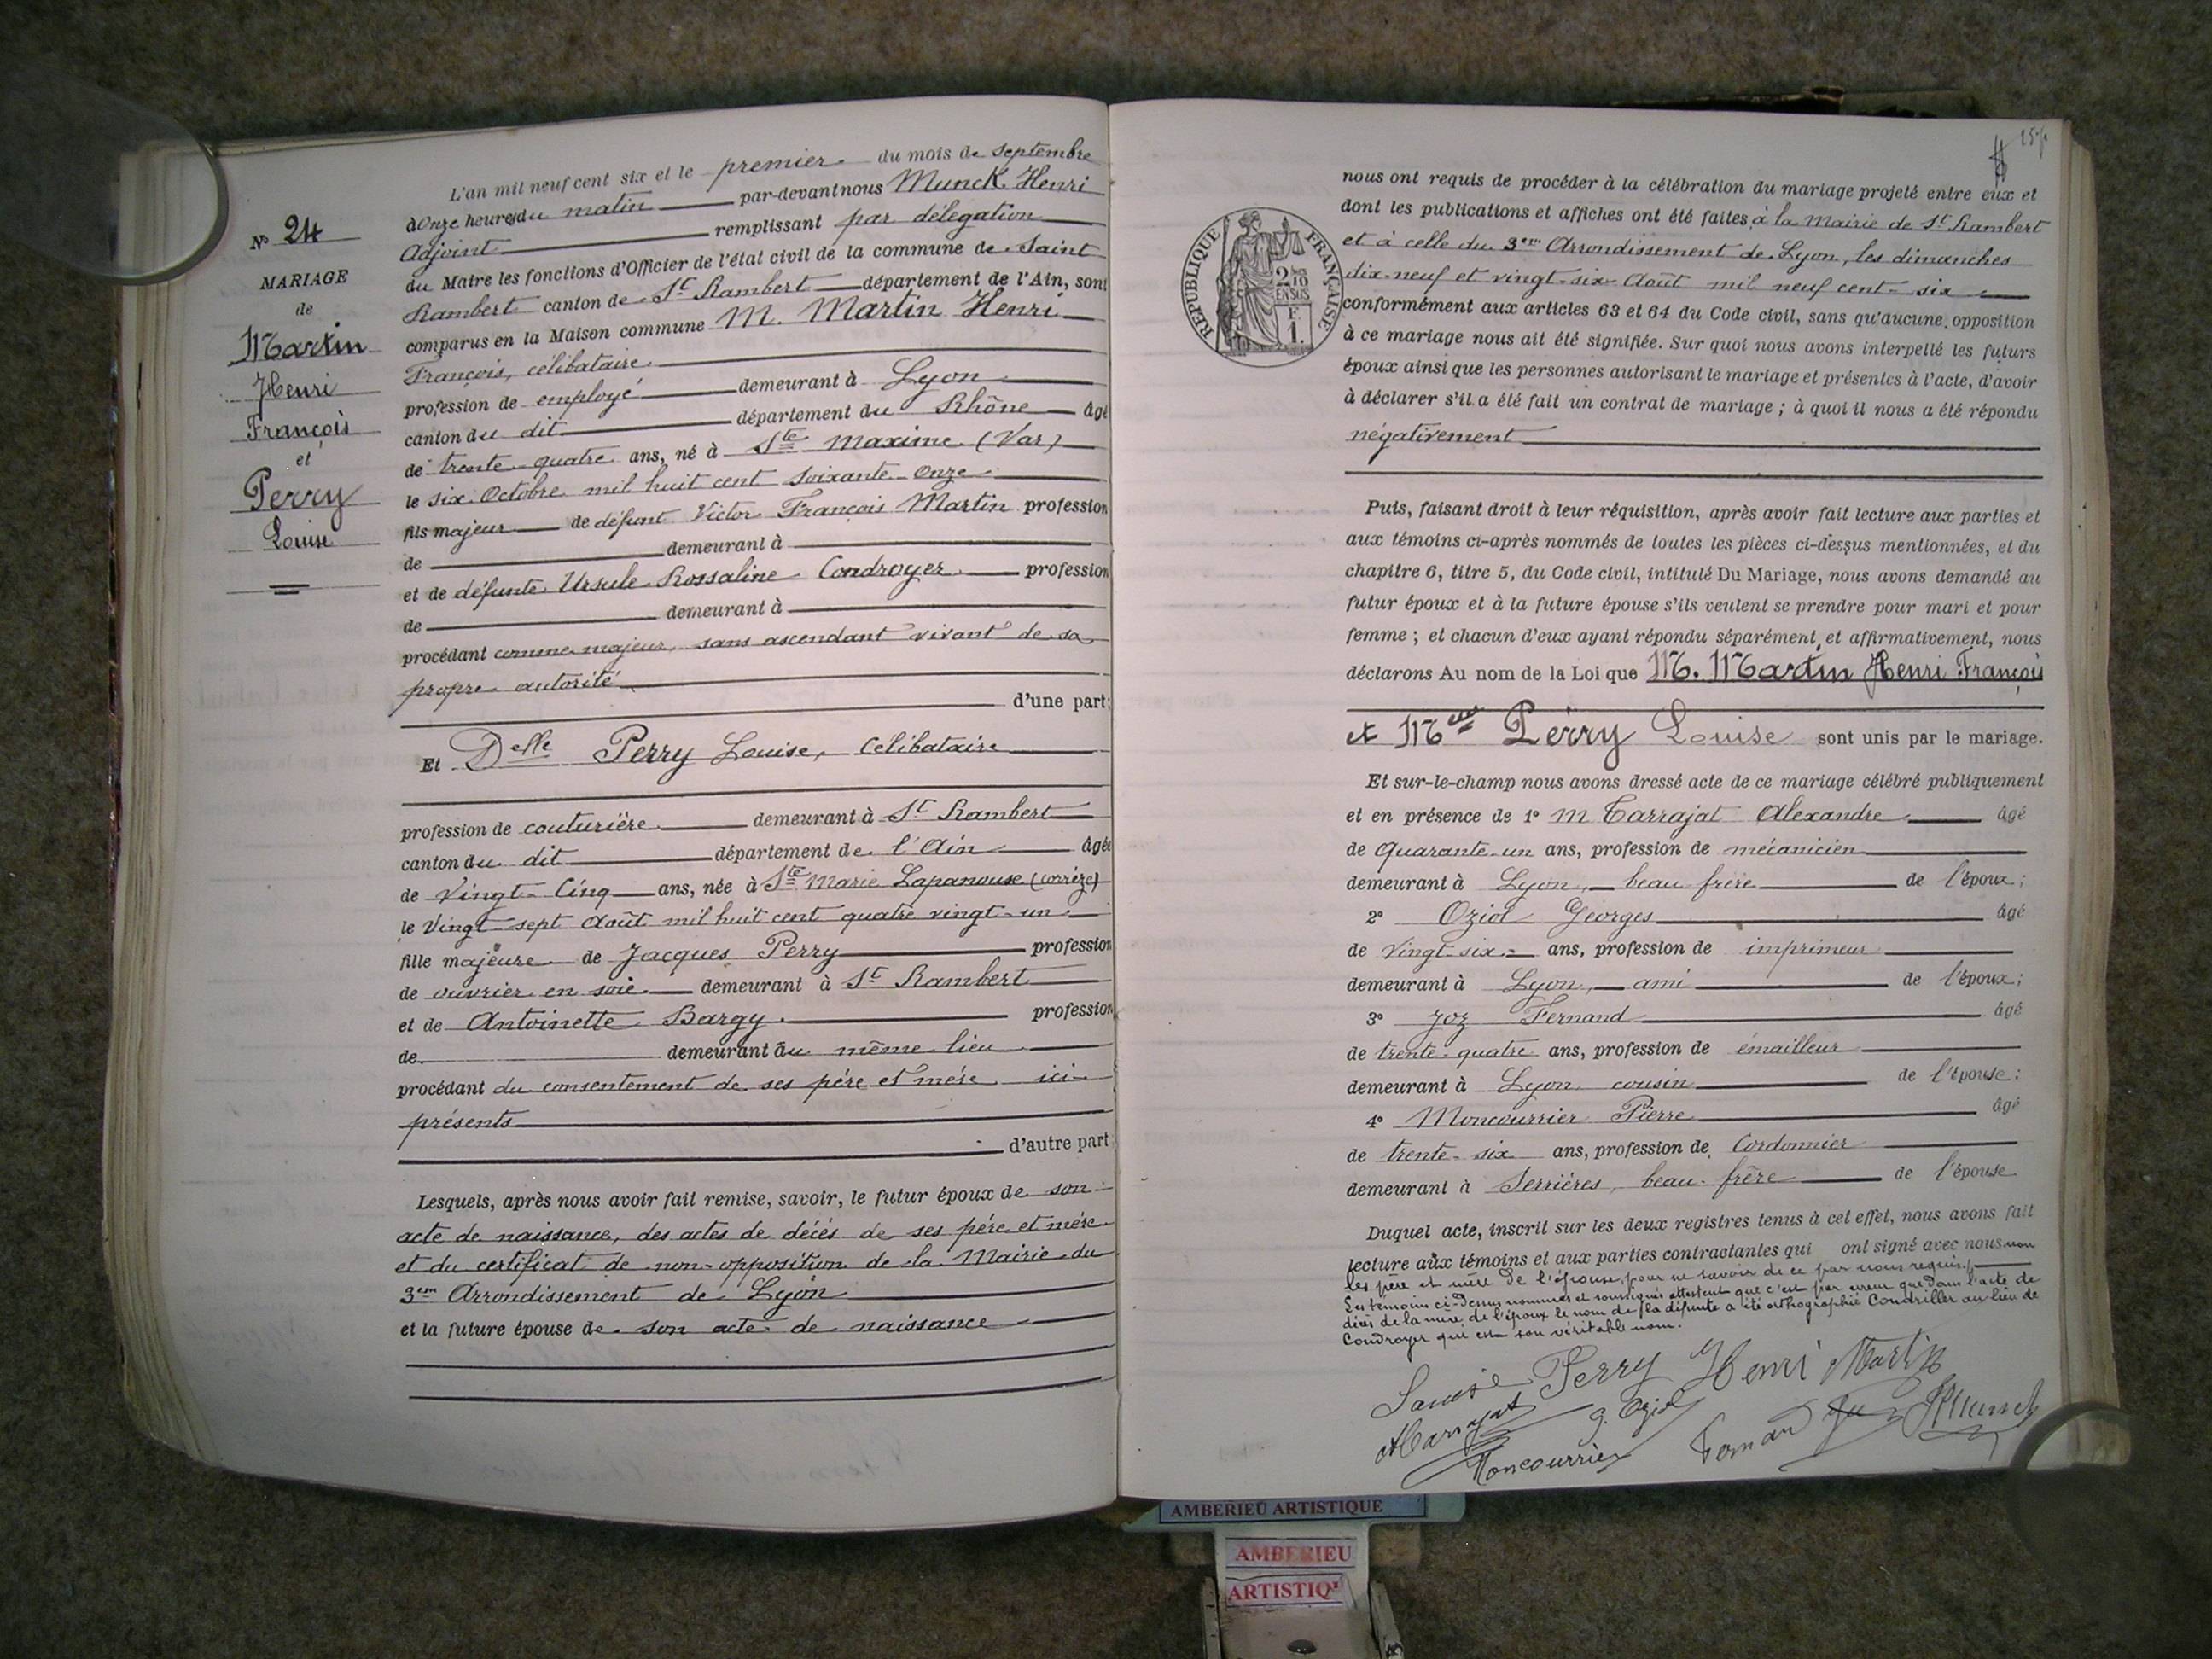 L'an mil neuf cent six et le premier du mois de septembre
à Onze heures du matin par-devant nous Munck Henri
Adjoint remplissant par délégation
du Maire les fonctions d'Officier de l'état civil de la commune de Saint
Rambert canton de St Rambert département de l'Ain, sont
comparus en la Maison commune M. Martin Henri
François, célibataire
profession de employé demeurant à Lyon
canton du dit département du Rhône âgé
de trente-quatre ans, né à Ste Maxime (Var)
le six Octobre mil huit cent soixante-onze
fils majeur de défunt Victor François Martin profession
de demeurant à
et de défunte Ursule Rossaline Condroyer profession
de demeurant à
procédant comme majeur, sans ascendant vivant de sa
propre autorité
d'une part;
Et Delle Perry Louise, célibataire
profession de couturière demeurant à St Rambert
canton du dit département de l'Ain âgée
de Vingt-Cinq ans, née à Ste Marie Lapanouse (corrèze)
le Vingt-sept Août mil huit cent quatre vingt-un
fille majeure de Jacques Perry profession
de ouvrier en soie demeurant à St Rambert
et de Antoinette Bargy profession
de demeurant au même lieu
procédant du consentement de ses père et mère ici
présents
d'autre part
Lesquels, après nous avoir fait remise, savoir, le futur époux de son
acte de naissance, des actes de décés de ses père et mère
et du certificat de non-opposition de la Mairie du
3em Arrondissement de Lyon
et la future épouse de son acte de naissance
No 24
MARIAGE
de
Martin
Henri
François
et
Perry
Louise
RÉPUBLIQUE FRANÇAISE
2/10 EN SUS
F. 1.
nous ont requis de procéder à la célébration du mariage projeté entre eux et
dont les publications et affiches ont été faites à la Mairie de St Rambert
et à celle du 3em Arrondissement de Lyon, les dimanches
dix-neuf et vingt-six Août mil neuf cent-six
conformément aux articles 63 et 64 du Code civil, sans qu'aucune opposition
à ce mariage nous ait été signifiée. Sur quoi nous avons interpellé les futurs
époux ainsi que les personnes autorisant le mariage et présentes à l'acte, d'avoir
à déclarer s'il a été fait un contrat de mariage ; à quoi il nous a été répondu
négativement
Puis, faisant droit à leur réquisition, après avoir fait lecture aux parties et
aux témoins ci-après nommés de toutes les pièces ci-dessus mentionnées, et du
chapitre 6, titre 5, du Code civil, intitulé Du Mariage, nous avons demandé au
futur époux et à la future épouse s'ils veulent se prendre pour mari et pour
femme ; et chacun d'eux ayant répondu séparément et affirmativement, nous
déclarons Au nom de la Loi que M. Martin Henri François
et Melle Perry Louise sont unis par le mariage.
Et sur-le-champ nous avons dressé acte de ce mariage célébré publiquement
et en présence de 1° M Tarrajat Alexandre âgé
de Quarante-un ans, profession de mécanicien
demeurant à Lyon, beau frère de l'époux;
2° Oziol Georges âgé
de Vingt-six ans, profession de imprimeur
demeurant à Lyon, ami de l'époux;
3° Joz Fernand âgé
de trente-quatre ans, profession de émailleur
demeurant à Lyon cousin de l'épouse;
4° Moncourrier Pierre âgé
de trente-six ans, profession de Cordonnier
demeurant à Serrières, beau-frère de l'épouse
Duquel acte, inscrit sur les deux registres tenus à cet effet, nous avons fait
lecture aux témoins et aux parties contractantes qui ont signé avec nous non
les père et mère de l'épouse, pour ne savoir de ce par nous requis.
Les témoins ci-dessus nommés et soussignés attestent que c'est par erreur que dans l'acte de
décès de la mère de l'époux le nom de la défunte a été orthographié Condriller au lieu de
Condroyer qui est son véritable nom.
Louise Perry Henri Martin
G. Oziol
Moncourrier Fernand Joz HMunck
AMBERIEU ARTISTIQUE
AMBERIEU
ARTISTIQ